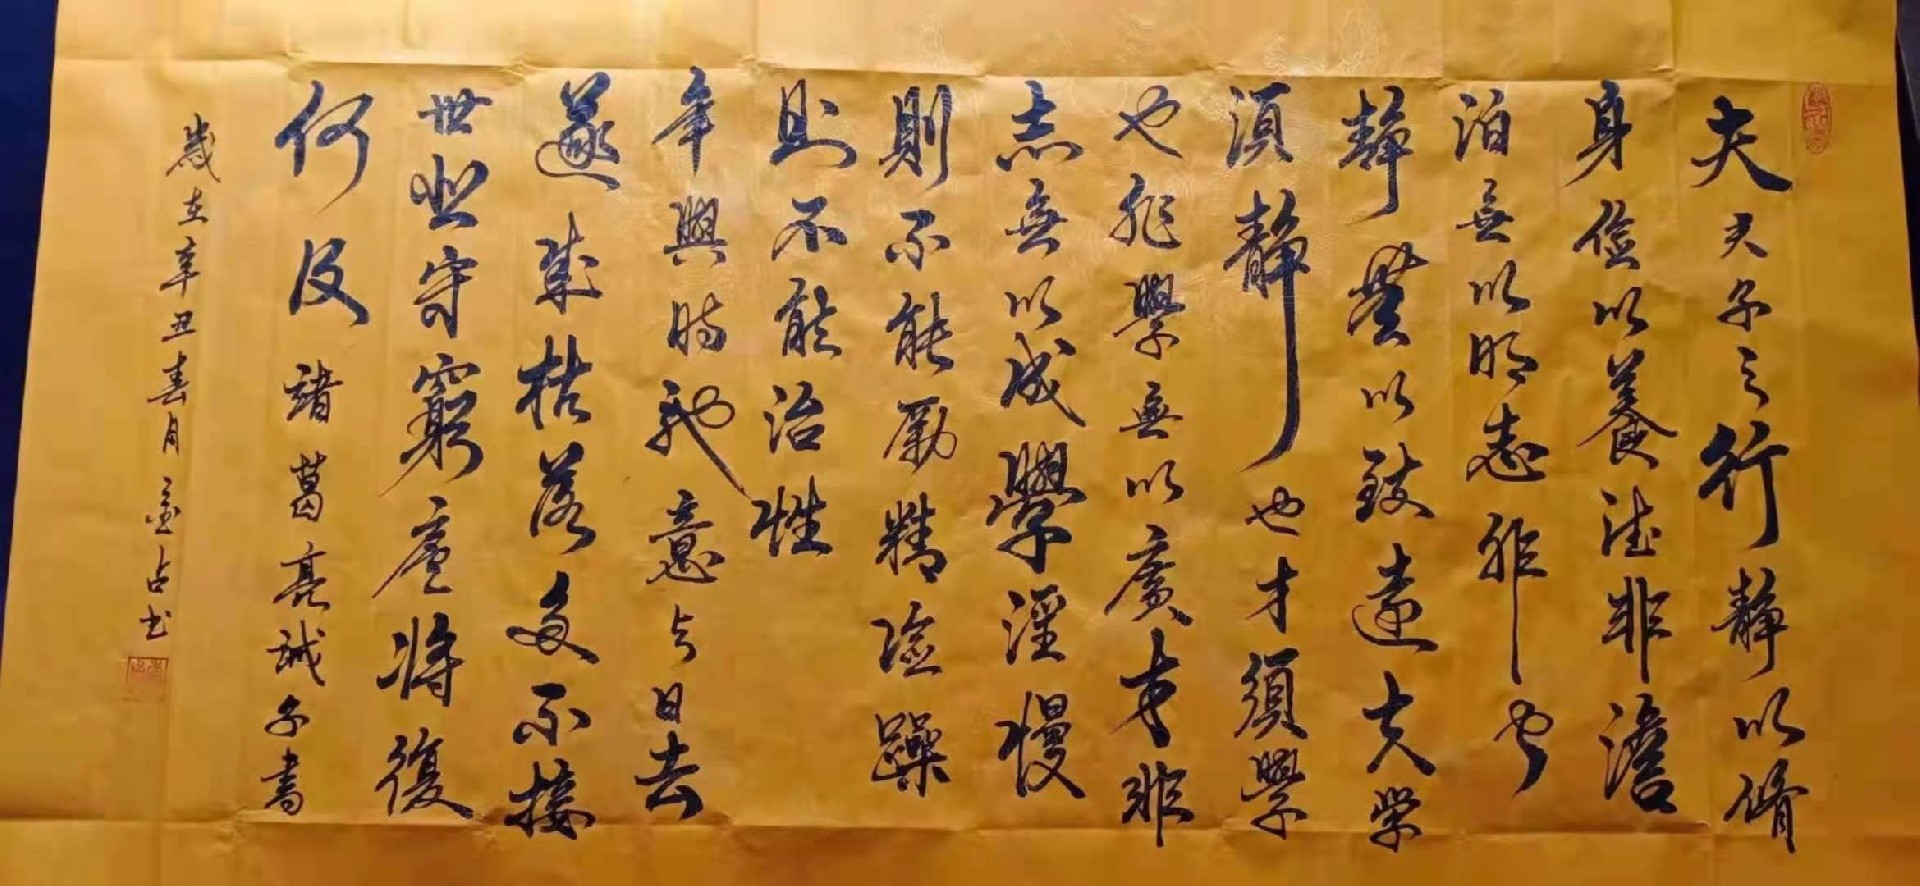 夫夫子之行靜以脩
身儉以養德非澹
泊無以明志非寧
靜無以致遠夫学
須靜也才須學
也非學無以廣才非
志無以成學淫慢
則不能勵精險躁
則不能治性
年與時馳意与日去
遂成枯落多不接
世悲守窮廬將復
何及諸葛亮誡子書
歲在辛丑春月金占书